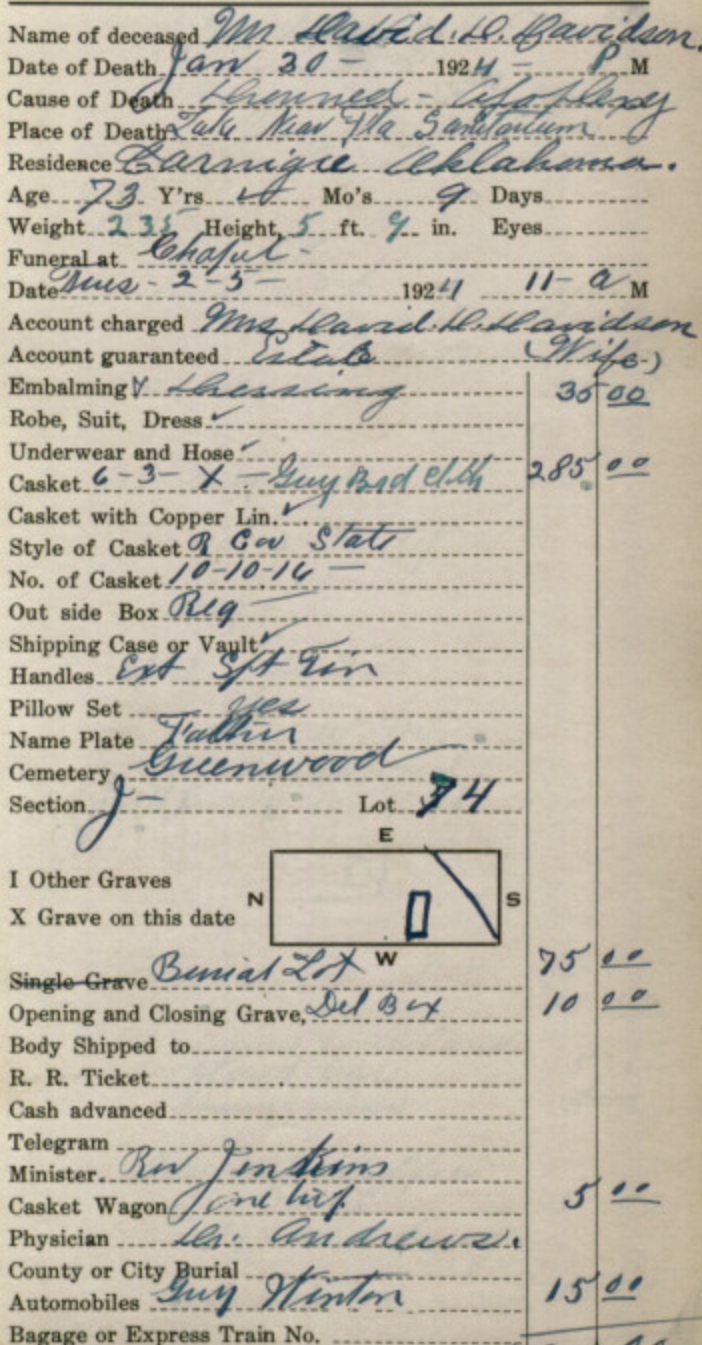 Name of deceased Mr David. D. Davidson.
Date of Death Jan 30 - 1924 - P M
Cause of Death Drowned - Apoplexy
Place of Death Lake Near Fla Sanitarium
Residence Carnigie Oklahoma.
Age 73 Y'rs Mo's 9 Days
Weight 235 Height, 5 ft. 9 in. Eyes
Funeral at Chapel -
Date - 2-5- 1924 11- a M
Account charged Mrs David. D. Davidson
Account guaranteed Estate (Wife-)
Embalming & Dressing 35 00
Robe, Suit, Dress ✓
Underwear and Hose ✓
Casket 6-3- X - Grey Brd Clth 285 00
Casket with Copper Lin. ✓
Style of Casket State
No. of Casket 10-10-16 -
Out side Box Reg -
Shipping Case or Vault ✓
Handles Ext
Pillow Set yes
Name Plate Father
Cemetery Greenwood
Section J - Lot 74
E
I Other Graves
N S
X Grave on this date
W
Single Grave Burial Lot 75 00
Opening and Closing Grave, Del Box 10 00
Body Shipped to
R. R. Ticket
Cash advanced
Telegram
Minister. Rev Jenkins
Casket Wagon one trip 5 00
Physician Dr. Andrews.
County or City Burial
Automobiles Guy Winton 15 00
Bagage or Express Train No.